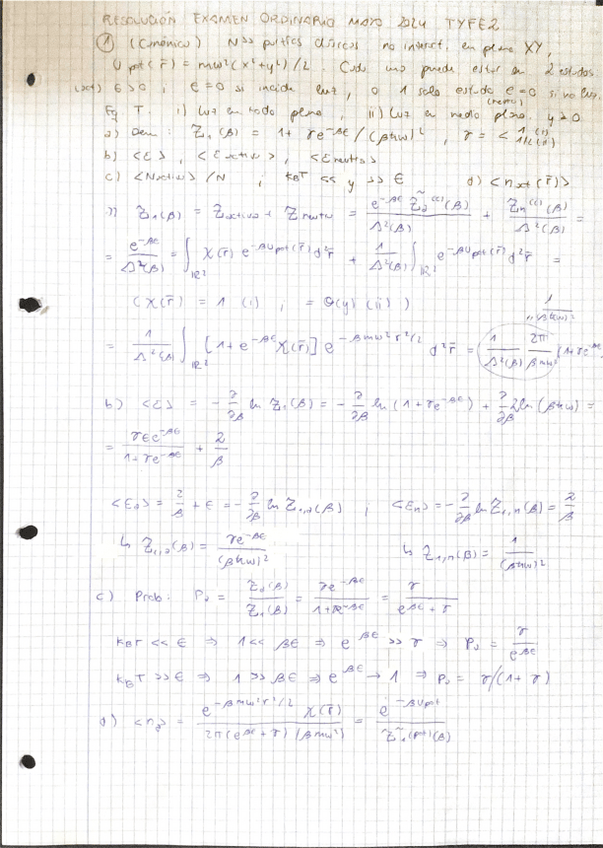 RESOLUCIÓN EXAMEN ORDINARIO MAYO 2024 TYFE2
① (Canónico) N>> puntos clásicos no interact. en plano XY,
U pot(r̄) = mω²(x²+y²)/2. Cada uno puede estar en 2 estados
(act) ε>0 ; ε=0 si incide luz, o 1 solo estado ε=0 si no luz.
(neutro)
Eq T. i) luz en todo plano, ii) luz en medio plano. y>0
a) Dem: Z₁(β) = 1+γe^-βε/(βħω)², γ = < 1 (i) 1/2 (ii)
b) <ε>, <ε activo>, <ε neutro>
c) <N activo>/N ; k_BT << y >> ε d) <n act(r̄)>
a) Z₁(β) = Z activo + Z neutro = e^-βε Z̃a^(c1)(β)/Λ²(β) + Z̃n^(c1)(β)/Λ²(β) =
= e^-βε/Λ²(β) = ∫_ℝ² χ(r̄) e^-βUpot(r̄) d²r̄ + 1/Λ²(β) ∫_ℝ² e^-βUpot(r̄) d²r̄ =
(χ(r̄) = 1 (i) ; = Θ(y) (ii)) 1/(βħω)²
= 1/Λ²(β) ∫_ℝ² [1+e^-βε χ(r̄)] e^-βmω²r²/2 d²r̄ = 1/Λ²(β) 2π/βmω² (1+γe^-βε
b) <ε> = -∂/∂β ln Z₁(β) = -∂/∂β ln (1+γe^-βε) + ∂/∂β 2ln(βħω) =
= γεe^-βε/1+γe^-βε + 2/β
<εa> = 2/β + ε = -∂/∂β ln Z₁,a(β) ; <εn> = -∂/∂β ln Z₁,n(β) = 2/β
↳ Z₁,a(β) = γe^-βε/(βħω)² ↳ Z₁,n(β) = 1/(βħω)²
c) Prob: Pa = Za(β)/Z₁(β) = γe^-βε/1+γe^-βε = γ/e^βε+γ
k_BT << ε ⇒ 1 << βε ⇒ e^βε >> γ ⇒ Pa = γ/e^βε
k_BT >> ε ⇒ 1 >> βε ⇒ e^βε → 1 ⇒ Pa = γ/(1+γ)
d) <na> = e^-βmω²r²/2 χ(r̄)/2π(e^βε+γ)(βmω²) = e^-βUpot/Z̃a^(pot)(β)